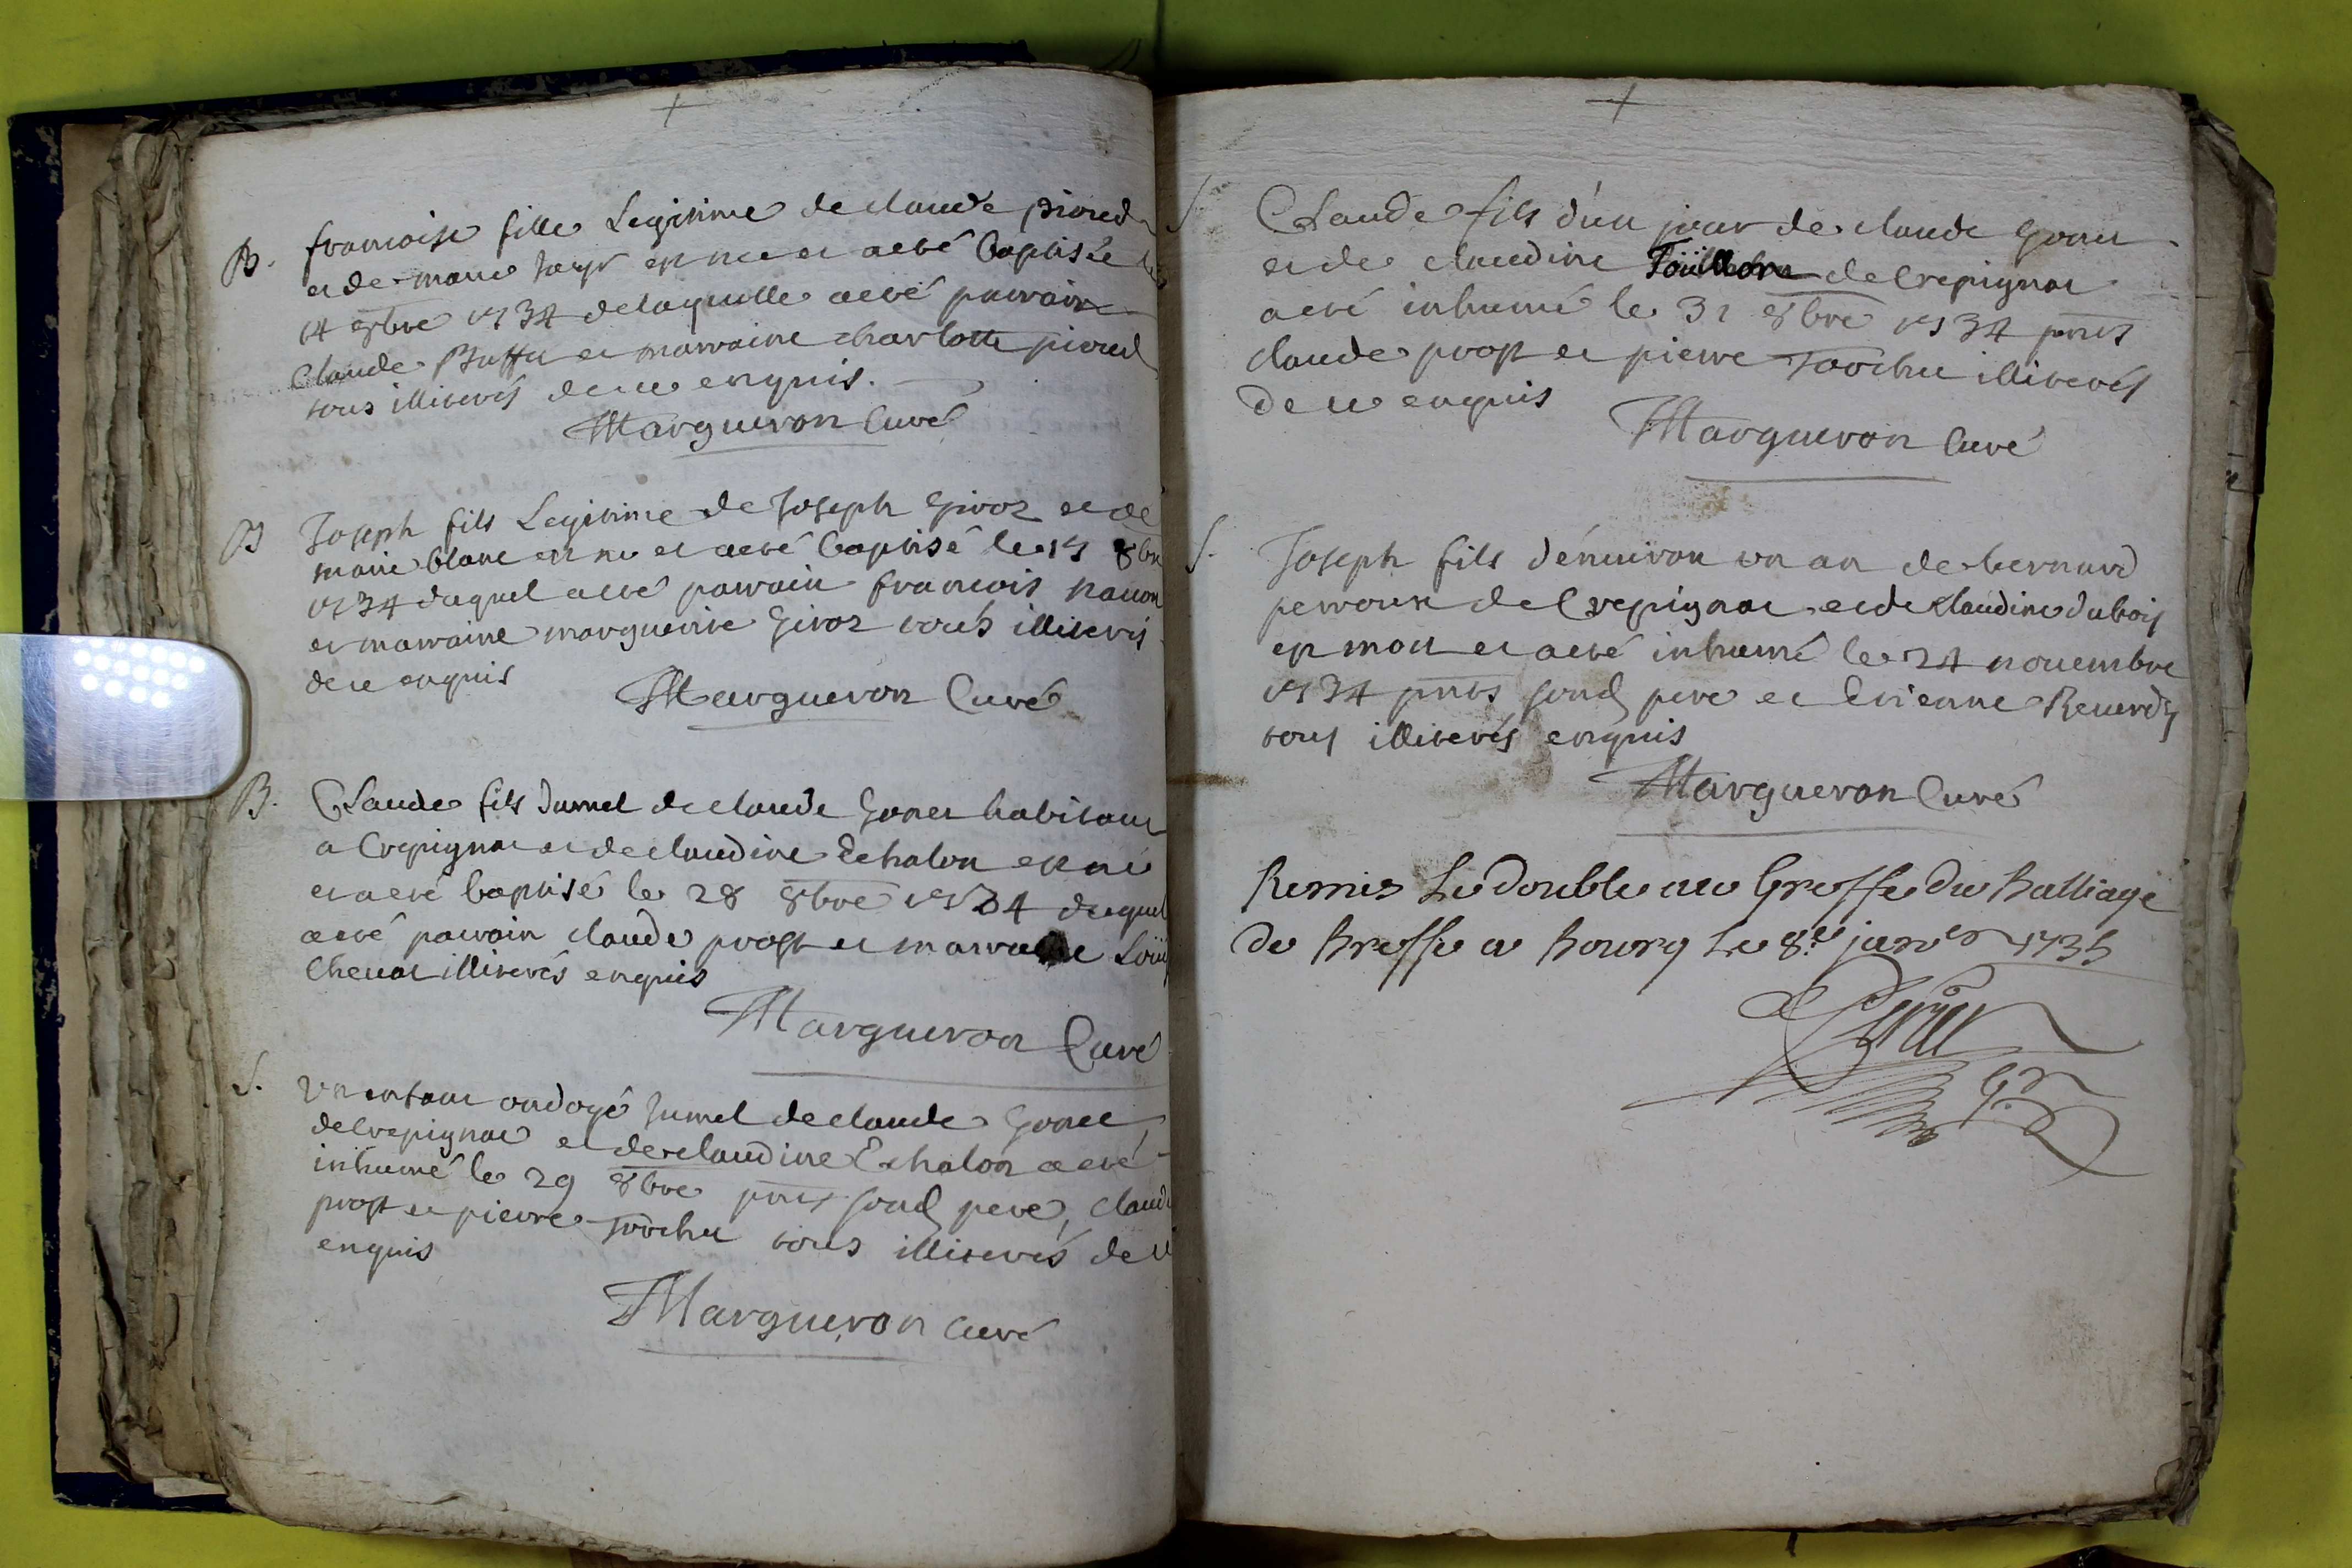 +
B. francoise fille Legitime de claude pioud
et de marie est née et a eté baptisée
14 8bre 1734 de laquelle a eté parrain
Claude Buffet et marraine charlotte pioud
tous illiterés de ce enquis.
Margueron Curé
B Joseph fils Legitime de Joseph Giroz et de
marie blanc est né et a eté baptisé le 17 8bre
1734 duquel a eté parrain francois
et marraine marguerite Giroz tous illiterés
de ce enquis
Margueron Curé
B. Claude fils Jumel de claude Goner habitant
a Crepignat et de claudine Echalon est né
et a eté baptisé le 28 8bre 1734 duquel
a eté parrain claude prost et marraine
Chevat illiterés enquis
Margueron Curé
S. un enfant ondoyé Jumel de claude Gonet
de Crepignat et de claudine Echalon a eté
inhumé le 29 8bre pnts sond pere, claude
prost et pierre Torchu tous illiterés de ce
enquis
Margueron curé
+
S. Claude fils d'un jour de claude Gonet
et de claudine de Crepignat
a eté inhumé le 31 8bre 1734 pnts
claude prost et pierre Torchu illiterés
de ce enquis
Margueron Curé
S. Joseph fils d'enuiron un an de bernard
perroux de Crepignat et de Claudine dubois
est mort et a eté inhumé le 24 nouembre
1734 pnts sond pere et Etienne Reuerdy
tous illiterés enquis
Margueron Curé
Remis Le double au Greffe du Balliage
de Bresse a Bourg Le 8e janer 1735